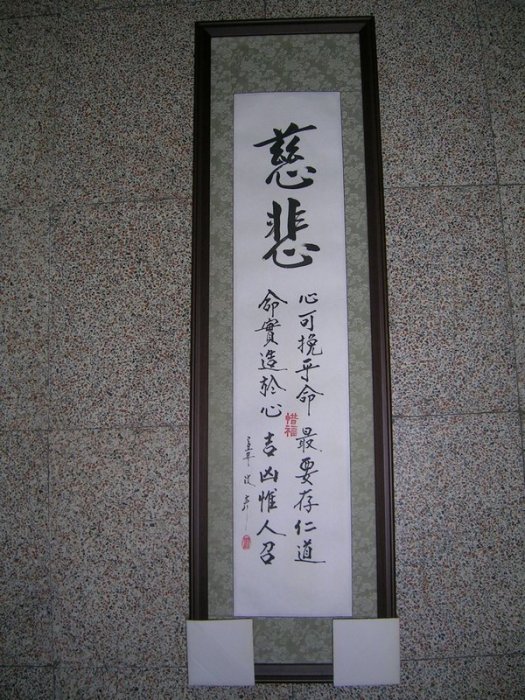 慈悲
心可挽乎命 最要存仁道
命實造於心 吉凶惟人召
惜福